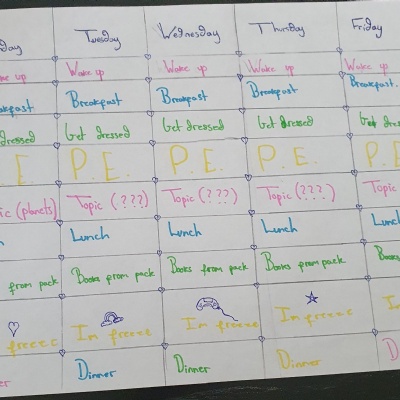 day Tuesday Wednesday Thursday Friday
ke up Wake up Wake up Wake up Wake up
kfast Breakfast Breakfast Breakfast Breakfast.
dressed Get dressed Get dressed Get dressed Get dressed
E P.E. P.E. P.E. P.E
ic (planets) Topic (???) Topic (???) Topic (???) Topic
h Lunch Lunch Lunch Lunch
from pack Books from pack Books from pack Books from pack Books
freeze In freeze In freeze In freeze In
er Dinner Dinner Dinner D